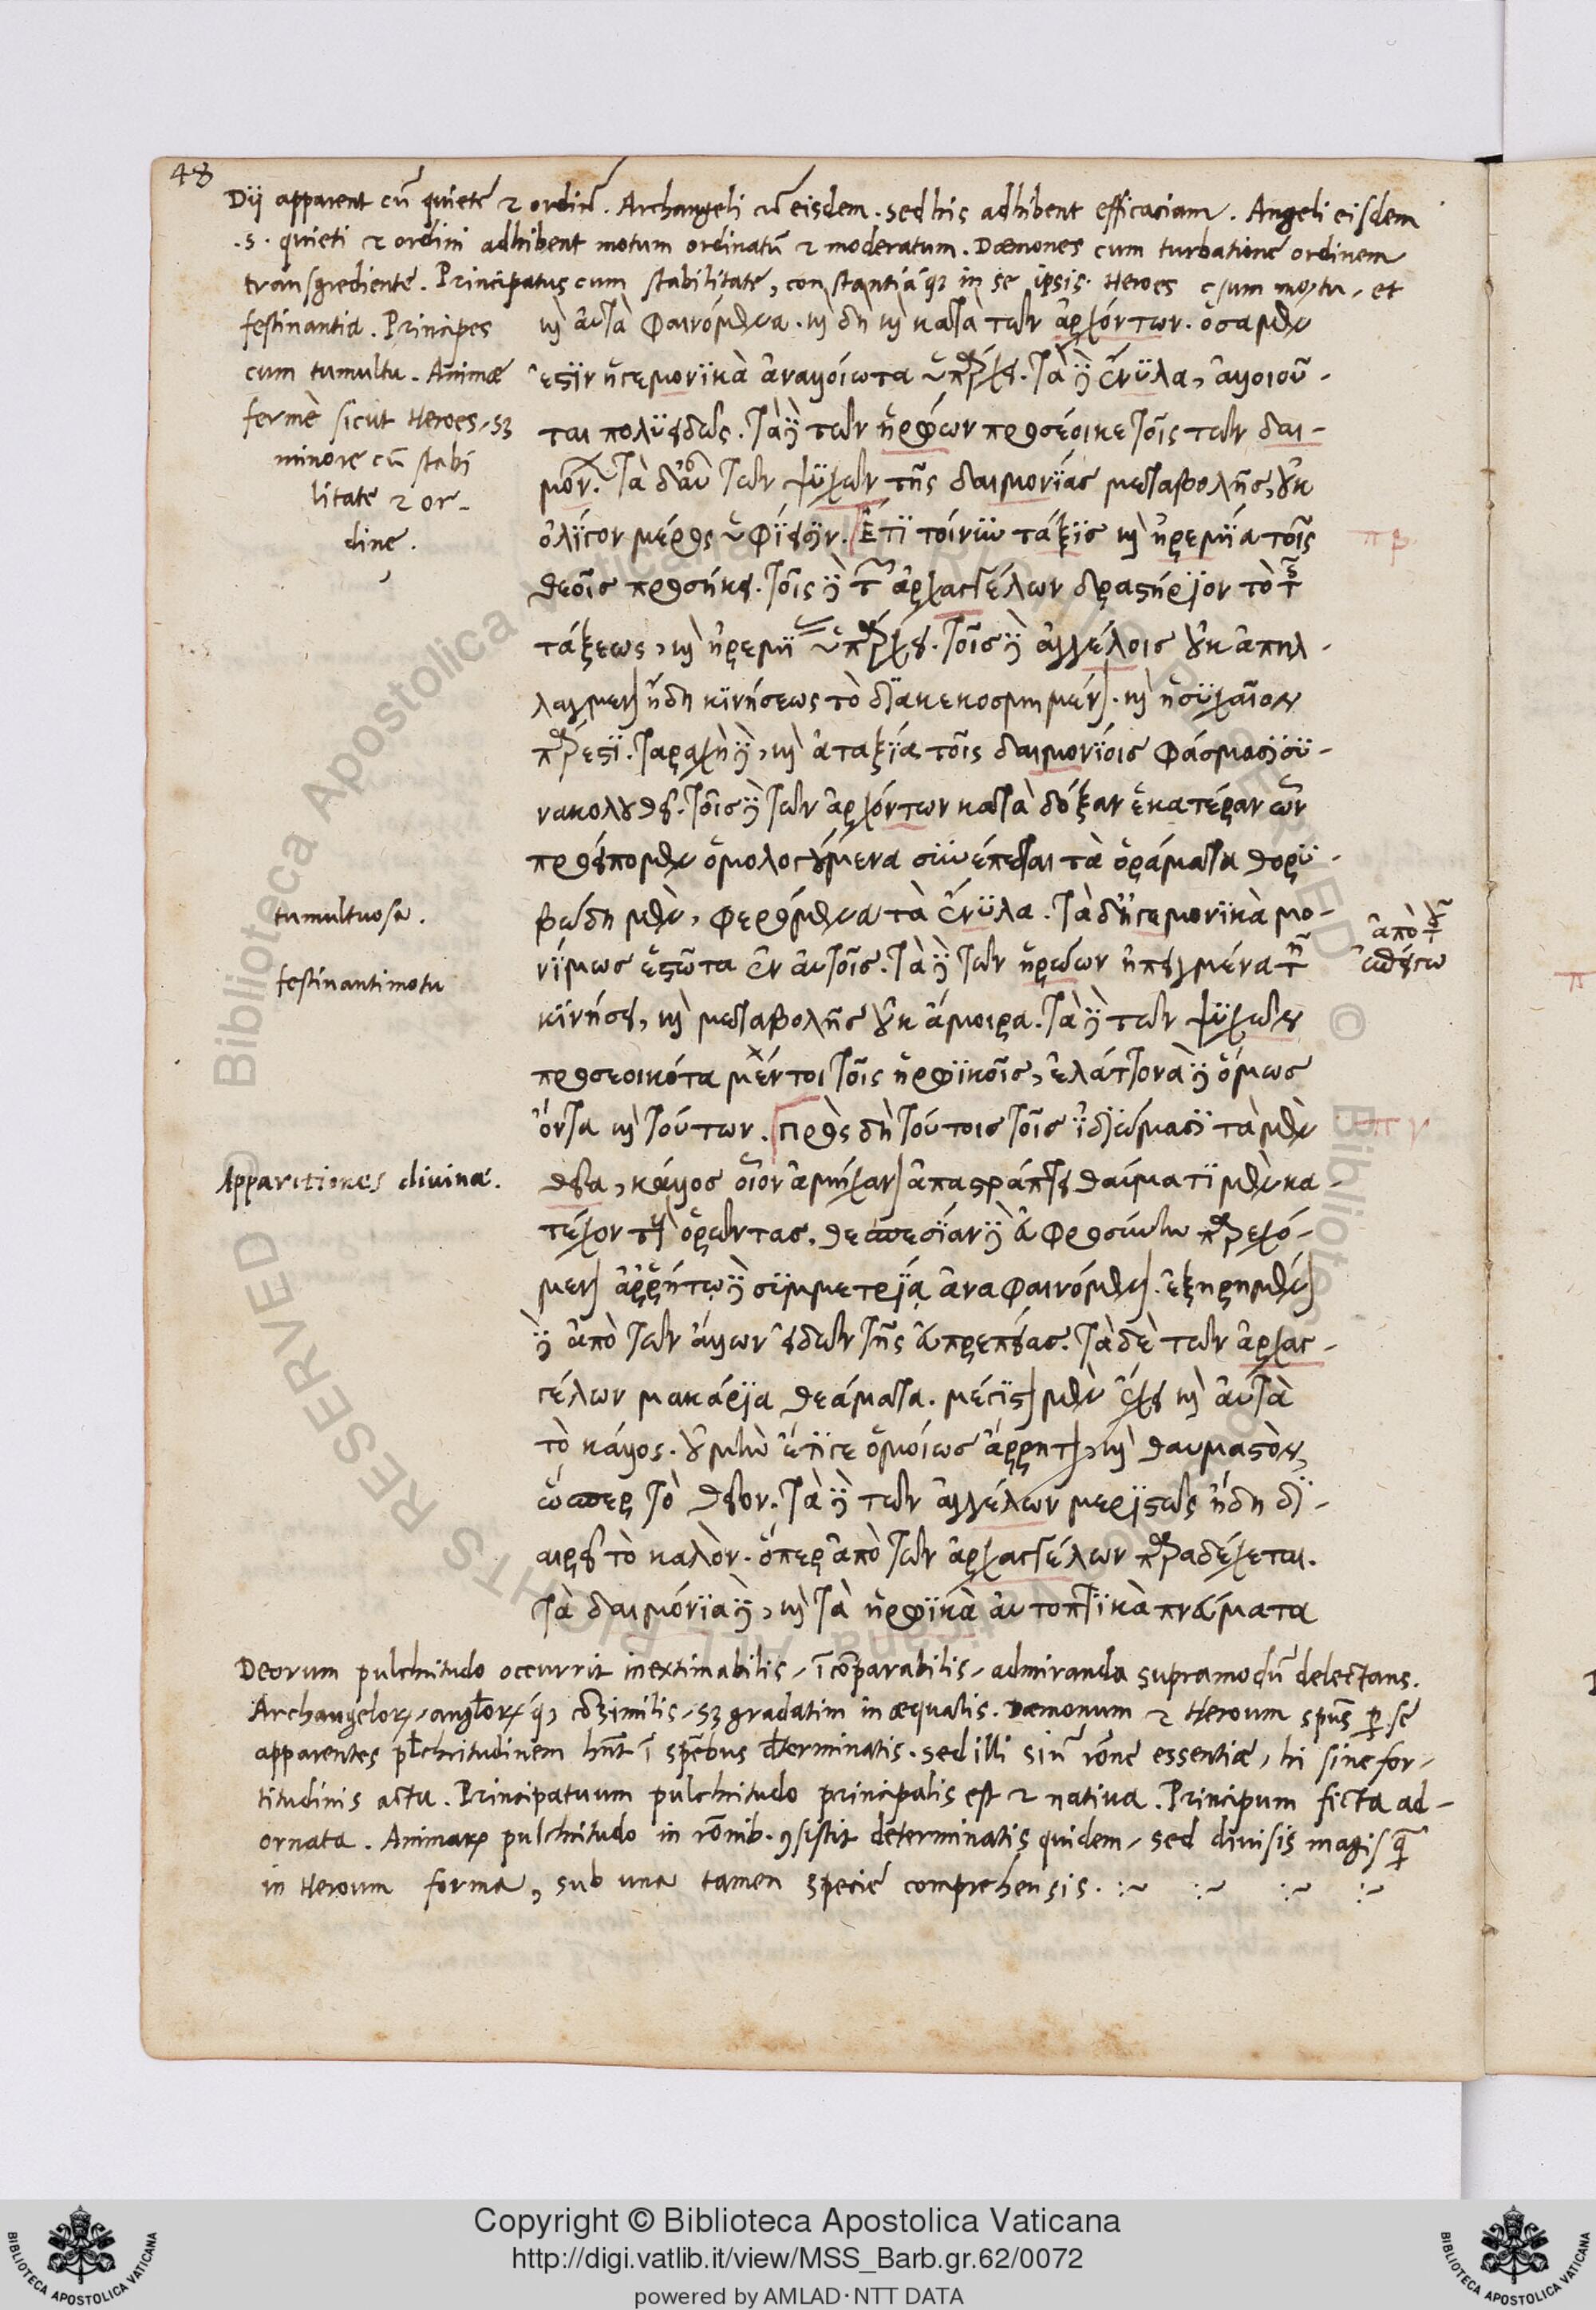 48
Dij apparent cū quiete 2 ordine. Archangeli cū eisdem. sed his adhibent efficaciam. Angeli eisdem
.s. quieti 2 ordini adhibent motum ordinatū 2 moderatum. Dæmones cum turbatione ordinem
transgrediente. Principatus cum stabilitate, constantiaq3 in se ipsis. Heroes cum motu, et
festinantia. Principes
cum tumultu. Animæ
fermè sicut Heroes, s3
minore cū stabi
litate 2 or-
dine.
καὶ αὐτὰ φαινόμενα. καὶ δὴ καὶ κατὰ τῶν ἀρχόντων. ὅσα μὲν
ἐστὶν ἡγεμονικὰ ἀναλλοίωτα ὑπάρχει. τὰ δὲ ἔνυλα, ἀλλοιοῦ-
ται πολυειδῶς. τὰ δὲ τῶν ἡρώων προσέοικε τοῖς τῶν δαι-
μόν. τὰ δ' αὖ τῶν ψυχῶν τῆς δαιμονίας μεταβολῆς, οὐκ
ὀλίγον μέρος ὑφίησιν. Ἔτι τοίνυν τάξις καὶ ἠρεμία τοῖς
θεοῖς προσήκει. τοῖς δὲ τῶν ἀρχαγγέλων δραστήριον τὸ τῆς
τάξεως, καὶ ἠρεμί ὑπάρχει. τοῖς δὲ ἀγγέλοις οὐκ ἀπηλ-
λαγμένον ἤδη κινήσεως τὸ διακεκοσμημένον. καὶ ἡσυχαῖον
πάρεστι. ταραχὴ δὲ, καὶ ἀταξία τοῖς δαιμονίοις φάσμασι συ-
νακολουθεῖ. τοῖς δὲ τῶν ἀρχόντων κατὰ δόξαν ἑκατέραν ὧν
προείπομεν ὁμολογούμενα συνέπεται τὰ ὁράματα θορυ-
βώδη μὲν, φερόμενα τὰ ἔνυλα. τὰ δ' ἡγεμονικὰ μο-
νίμως ἑστῶτα ἐν αὐτοῖς. τὰ δὲ τῶν ἡρώων ἠπειγμένα τῇ
κινήσει, καὶ μεταβολῆς οὐκ ἄμοιρα. τὰ δὲ τῶν ψυχῶν
προσεοικότα μέντοι τοῖς ἡρωϊκοῖς, ἐλάττονα δὲ ὅμως
ὄντα καὶ τούτων. πρὸς δὴ τούτοις τοῖς ἰδιώμασι τὰ μὲν
θεῖα, κάλλος οἷον ἀμήχανον ἀπαστράπτει θαύματι μὲν κα-
τέχον τοὺς ὁρῶντας. θεσπεσίαν δὲ εὐφροσύνην παρεχό-
μενον ἀρρήτῳ δὲ συμμετρίᾳ ἀναφαινόμενον. ἐξῃρημένον
δὲ ἀπὸ τῶν ἄλλων εἰδῶν τῆς εὐπρεπείας. τὰ δὲ τῶν ἀρχαγ-
γέλων μακάρια θεάματα. μέγιστον μὲν ἔχει καὶ αὐτὰ
τὸ κάλλος. οὐ μὴν ἔτι γε ὁμοίως ἄρρητον, καὶ θαυμαστὸν
ὥσπερ τὸ θεῖον. τὰ δὲ τῶν ἀγγέλων μεριστῶς ἤδη δι-
αιρεῖ τὸ καλὸν. ὅπερ ἀπὸ τῶν ἀρχαγγέλων παραδέχεται.
τὰ δαιμόνια δὲ, καὶ τὰ ἡρωϊκὰ αὐτοπτικὰ πνεύματα
πβ.
tumultuosa.
festinanti motu
ἀπὸ τοῦ
πγ
Apparitiones divinæ.
Deorum pulchritudo occurrit inextimabilis, īcōparabilis, admiranda supramodū delectans.
Archangelorꝝ, anglorꝝ q3, cōsimilis, s3 gradatim inæqualis. Dæmonum 2 Heroum spūs ꝑ se
apparentes pl̄chritudinem hn̄t ī spēbus dēterminatis. sed illi sinē rōne essentiæ, hi sine for-
titudinis actu. Principatuum pulchritudo principalis est 2 nativa. Principum ficta ad-
ornata. Animarꝝ pulchritudo in rōnib. ꝯsistit determinatis quidem, sed divisis magis q̄
in Heroum forma, sub una tamen specie comprehensis. :~ :~ :~ :~
© Biblioteca Apostolica Vaticana ALL RIGHTS RESERVED
Copyright © Biblioteca Apostolica Vaticana
http://digi.vatlib.it/view/MSS_Barb.gr.62/0072
powered by AMLAD·NTT DATA
BIBLIOTECA APOSTOLICA VATICANA
BIBLIOTECA APOSTOLICA VATICANA